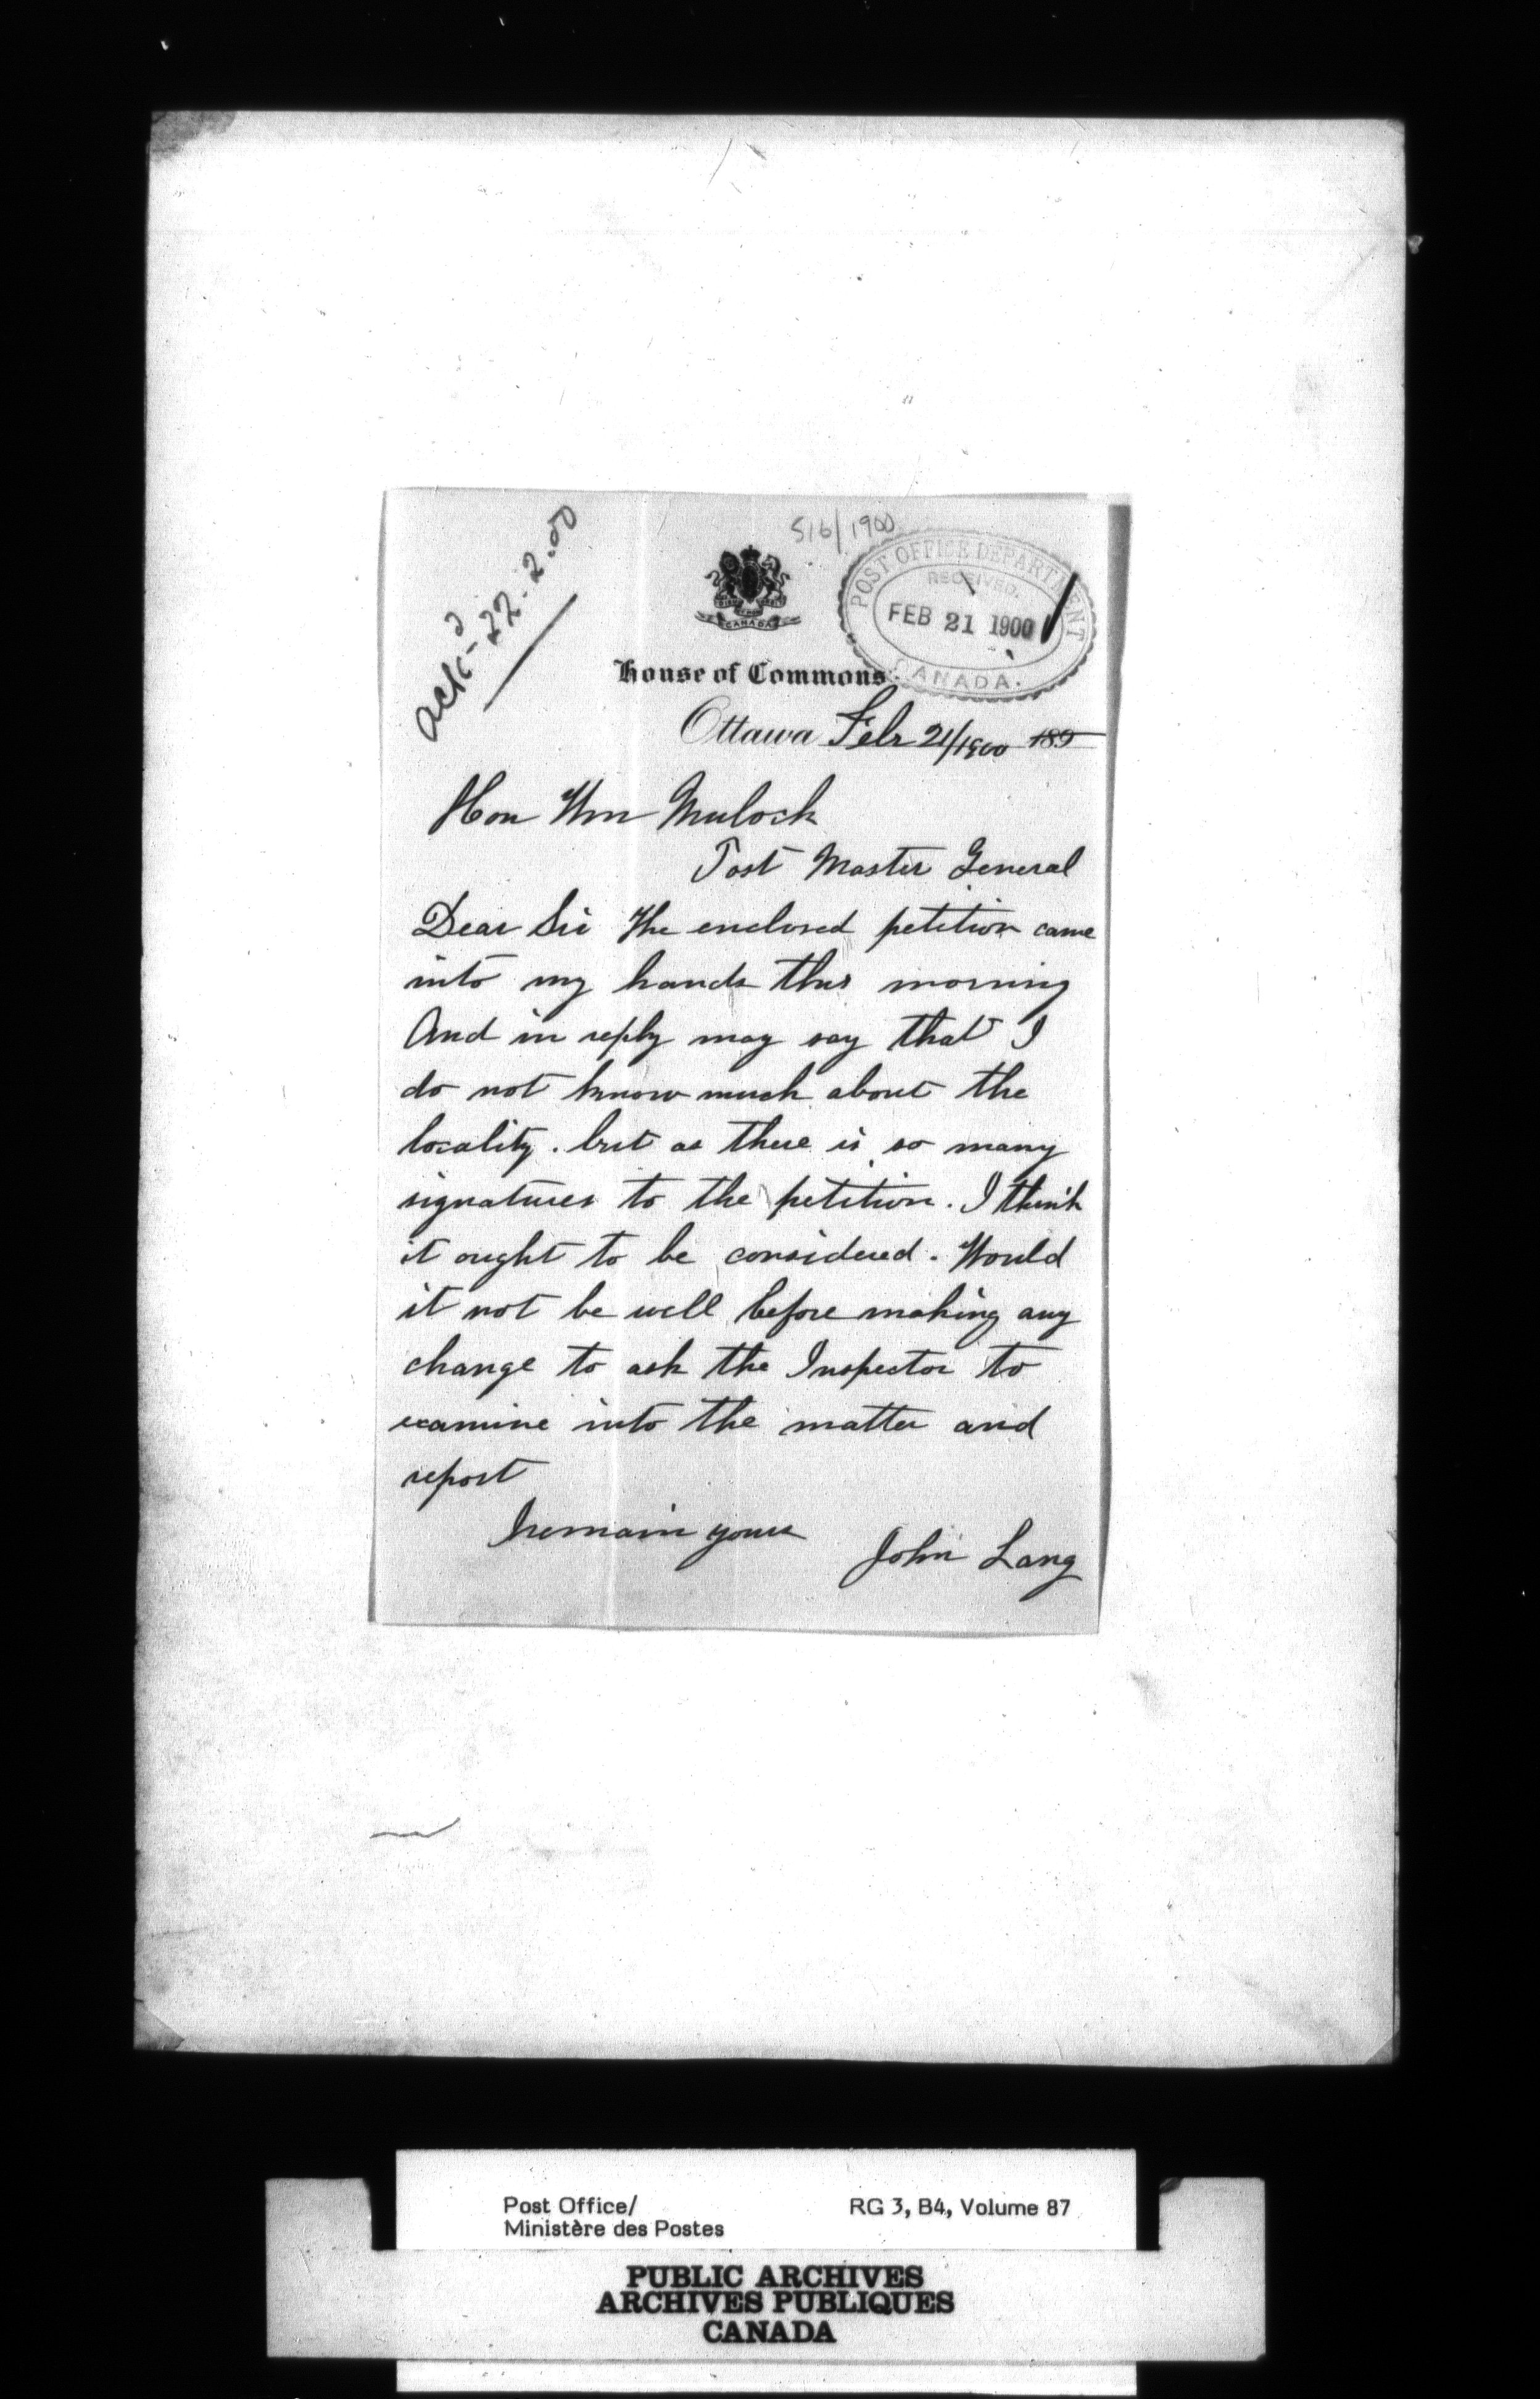 516/1900
ackd-22.2.00
POST OFFICE DEPARTMENT
RECEIVED.
FEB 21 1900
CANADA.
CANADA
House of Commons
Ottawa Feb 21/1900 189
Hon Wm Mulock
Post Master General
Dear Sir The enclosed petition came
into my hands this morning
And in reply may say that I
do not know much about the
locality. but as there is so many
signatures to the petition. I think
it ought to be considered. Would
it not be well before making any
change to ask the Inspector to
examine into the matter and
report
I remain yours
John Lang
Post Office/
Ministère des Postes
RG 3, B4, Volume 87
PUBLIC ARCHIVES
ARCHIVES PUBLIQUES
CANADA